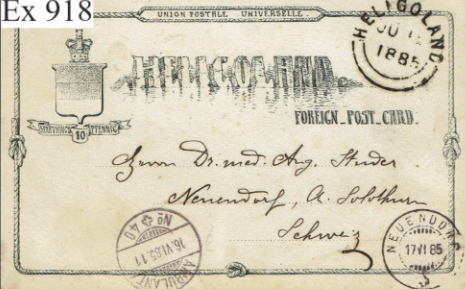 Ex 918
UNION POSTALE UNIVERSELLE
HELIGOLAND
JU
1885
HELIGOLAND
FARTHING 10 PFENNIG
FOREIGN POST CARD.
Herrn Dr. med. Aug. Studer
Neuendorf, A. Solothurn
Schweiz
AMBULANT
16.VI.85.11
No 40
NEUENDORF
17 VI 85